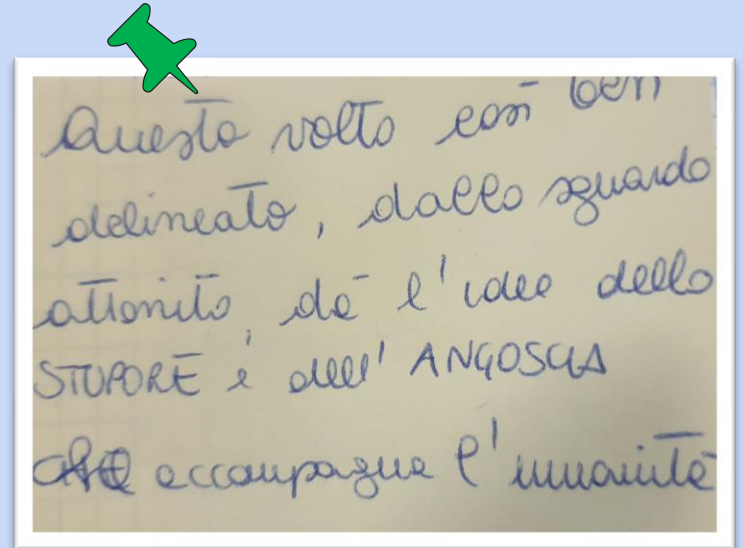 Questo volto così ben
delineato, dallo sguardo
attonito, dà l'idea dello
STUPORE e dell'ANGOSCIA
che accompagna l'umanità